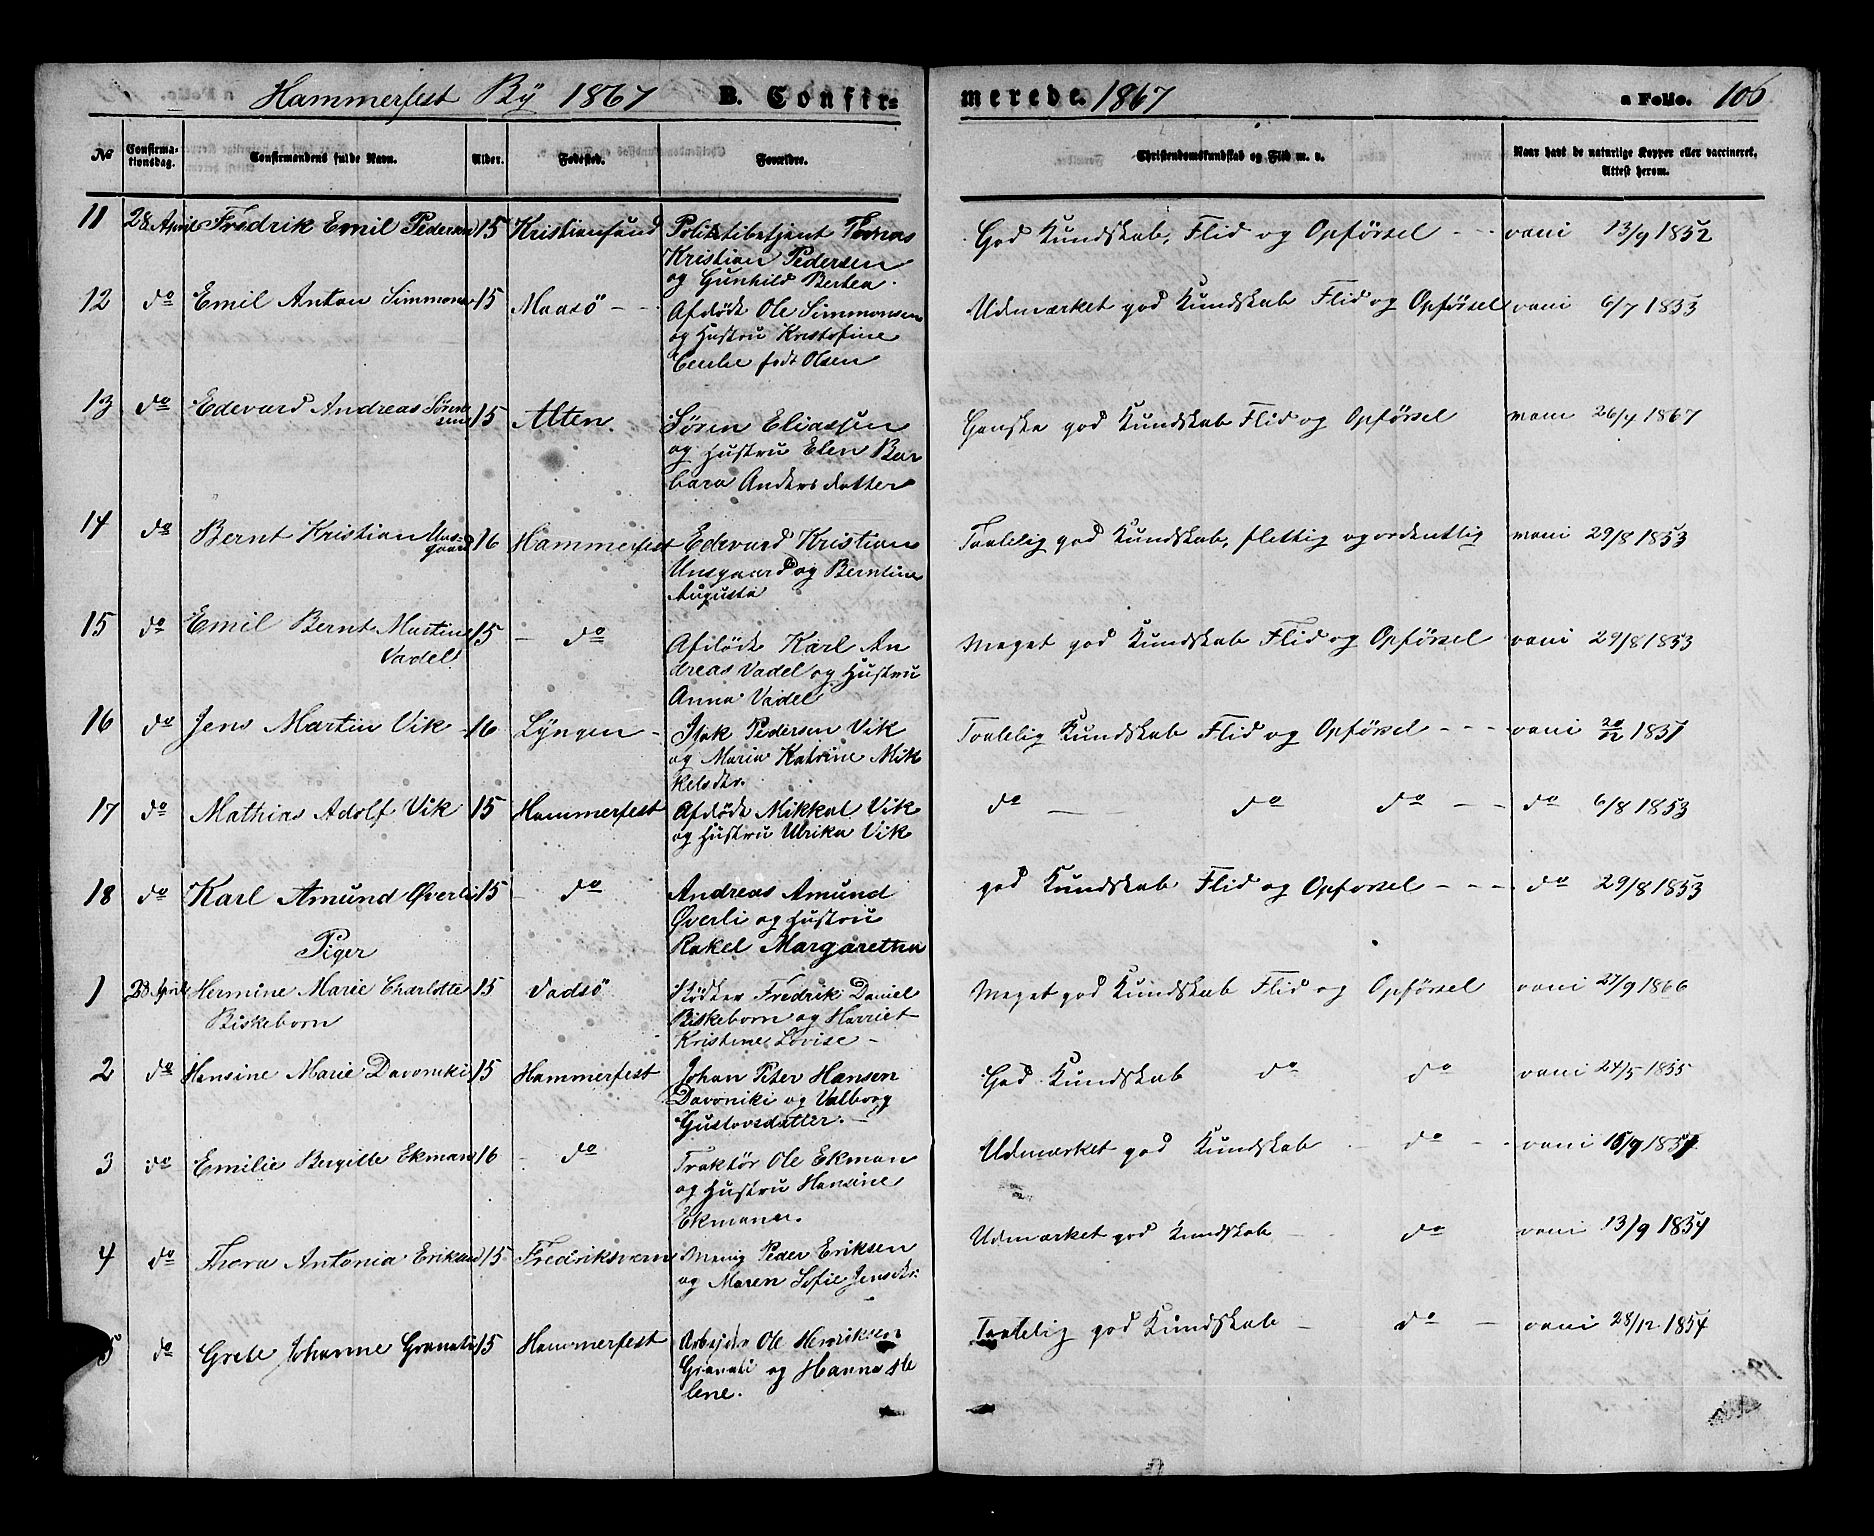 Hammerfest By 1867 B. Confir= merede. 1867 a Folio. 106
No Confirmationsdag. Confirmandens fulde Navn. Alder. Fødested. Forældre. Christendomskundskab og Flid m. v. Naar havt de naturlige Kopper eller vaccineret, Attest herom.
11 28 April Fredrik Emil Pedersen 15 Kristiansund Politibetjent Tomas God Kundskab, Flid og Opførsel - - - vani 13/9 1852
Kristian Pedersen
og Gunhild Bertea.
12 do Emil Anton Simmonsen 15 Maasö - - Afdöde Ole Simmonsen Udmærket god Kundskab Flid og Opförsel vani 6/7 1853
og Hustru Kristofine
Cecilie født Olsen
13 do Edevard Andreas Sörensen 15 Alten. Sören Eliassen Ganske god Kundskab Flid og Opförsel vani 26/4 1867
og Hustru Elen Bar
bara Andersdatter
14 do Bernt Kristian Unsgaard 16 Hammerfest Edevard Kristian Taalelig god Kundskab, flettig og ordentlig vani 29/8 1853
Unsgaard og Berntine
Augusta
15 do Emil Bernt Martin 15 - do Afdöde Karl An Meget god Kundskab Flid og Opförsel vani 29/8 1853
Vadel dreas Vadel og Hustru
Anna Vadel
16 do Jens Martin Vik - 16 - Lyngen - Isak Pedersen Vik Taalelig Kundskab Flid og Opförsel - - - vani 20/12 1851
og Maria Katrine Mik
kelsdtr.
17 do Mathias Adolf Vik 15 Hammerfest Afdöde Mikkal Vik do - do do - - do 6/8 1853
og Hustru Ulrika Vik
18 do Karl Amund Øverli 15 - do Andreas Amund god Kundskab Flid og Opforsel - - - do 29/8 1853
Øverli og Hustru
Piger Rakel Margaretha
1 28 April Hermine Marie Charlotte 15 Vadsö Rödker Fredrik Daniel Meget god Kundskab Flid og Opförsel vani 27/9 1866
Biskeborn Biskeborn og Harriet
Kristine Lovise -
2 do Hansine Marie Davoniki 15 Hammerfest Johan Peter Hansen God Kundskab do do vani 24/5 1855
Davoniki og Valborg
Gustavsdatter. -
3 do Emilie Bergitte Ekman 16 - do Traktör Ole Ekman Udmærket god Kundskab - do - vani 15/9 1851
og Hustru Hansine
Ekmann.
4 do Thora Antonia Eriksen 15 Fredriksværn Menig Peder Eriksen Udmærket god Kundskab - do vani 13/9 1854
og Maren Sofie Jensdtr.
5 do Grete Johanne Granati 15 Hammerfest Arbejder Ole Henriksen Taalelig god Kundskab - do - vani 28/12 1854
Granati og Hanna He
lene.